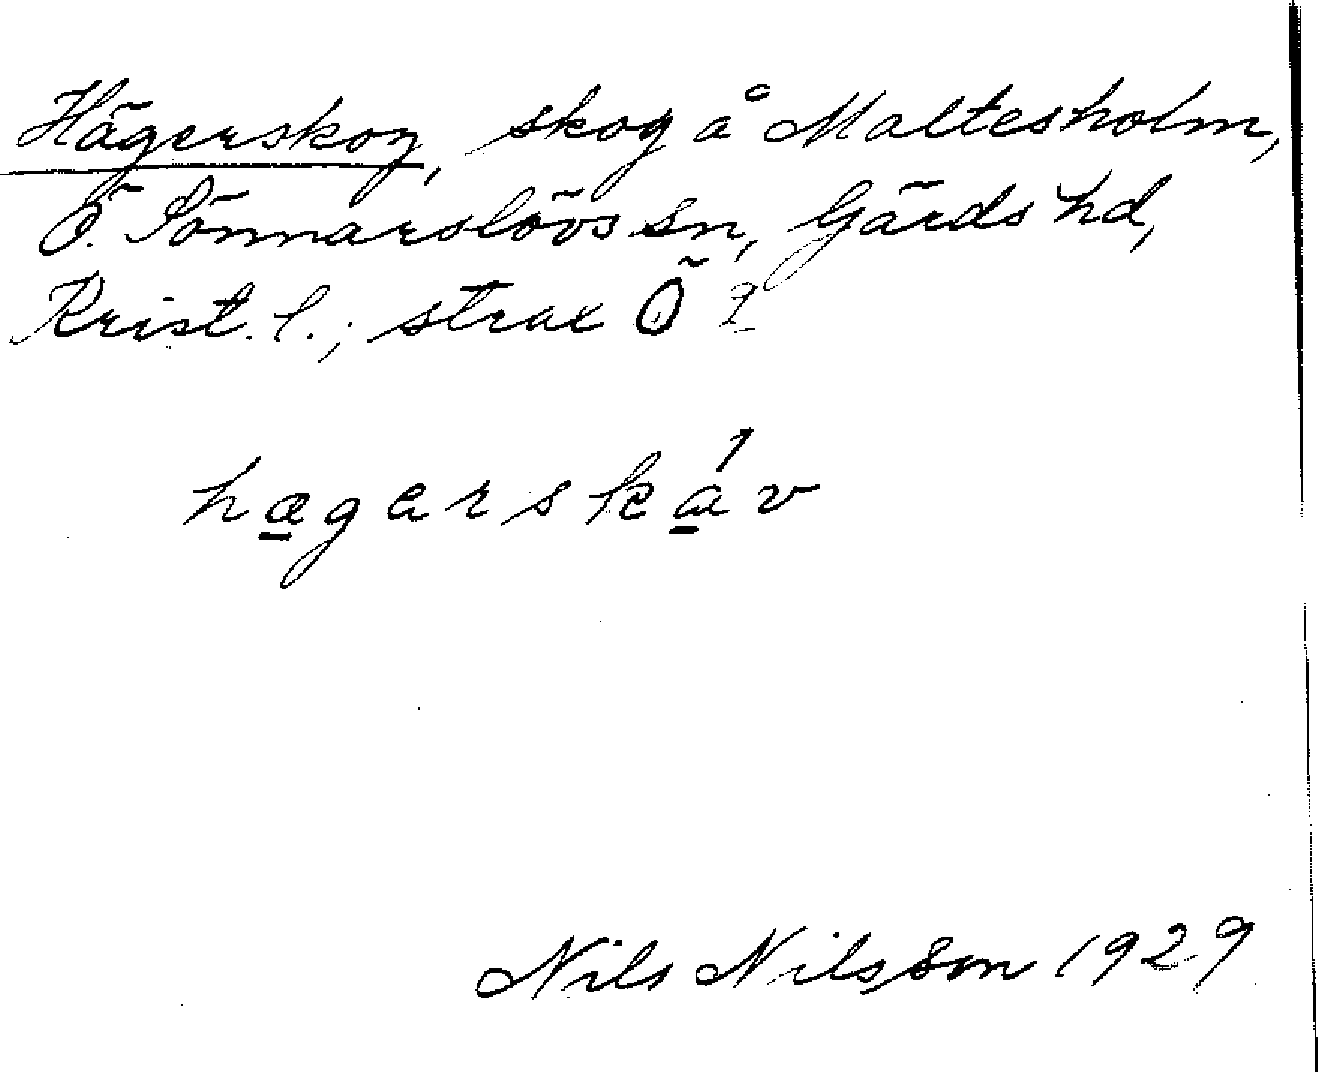 Hägerskog, skog å Maltesholm,
Ö. Sönnarslövs sn, Gärds hd,
Krist. l.; strax Ö ?
hægarskáv
Nils Nilsson 1929